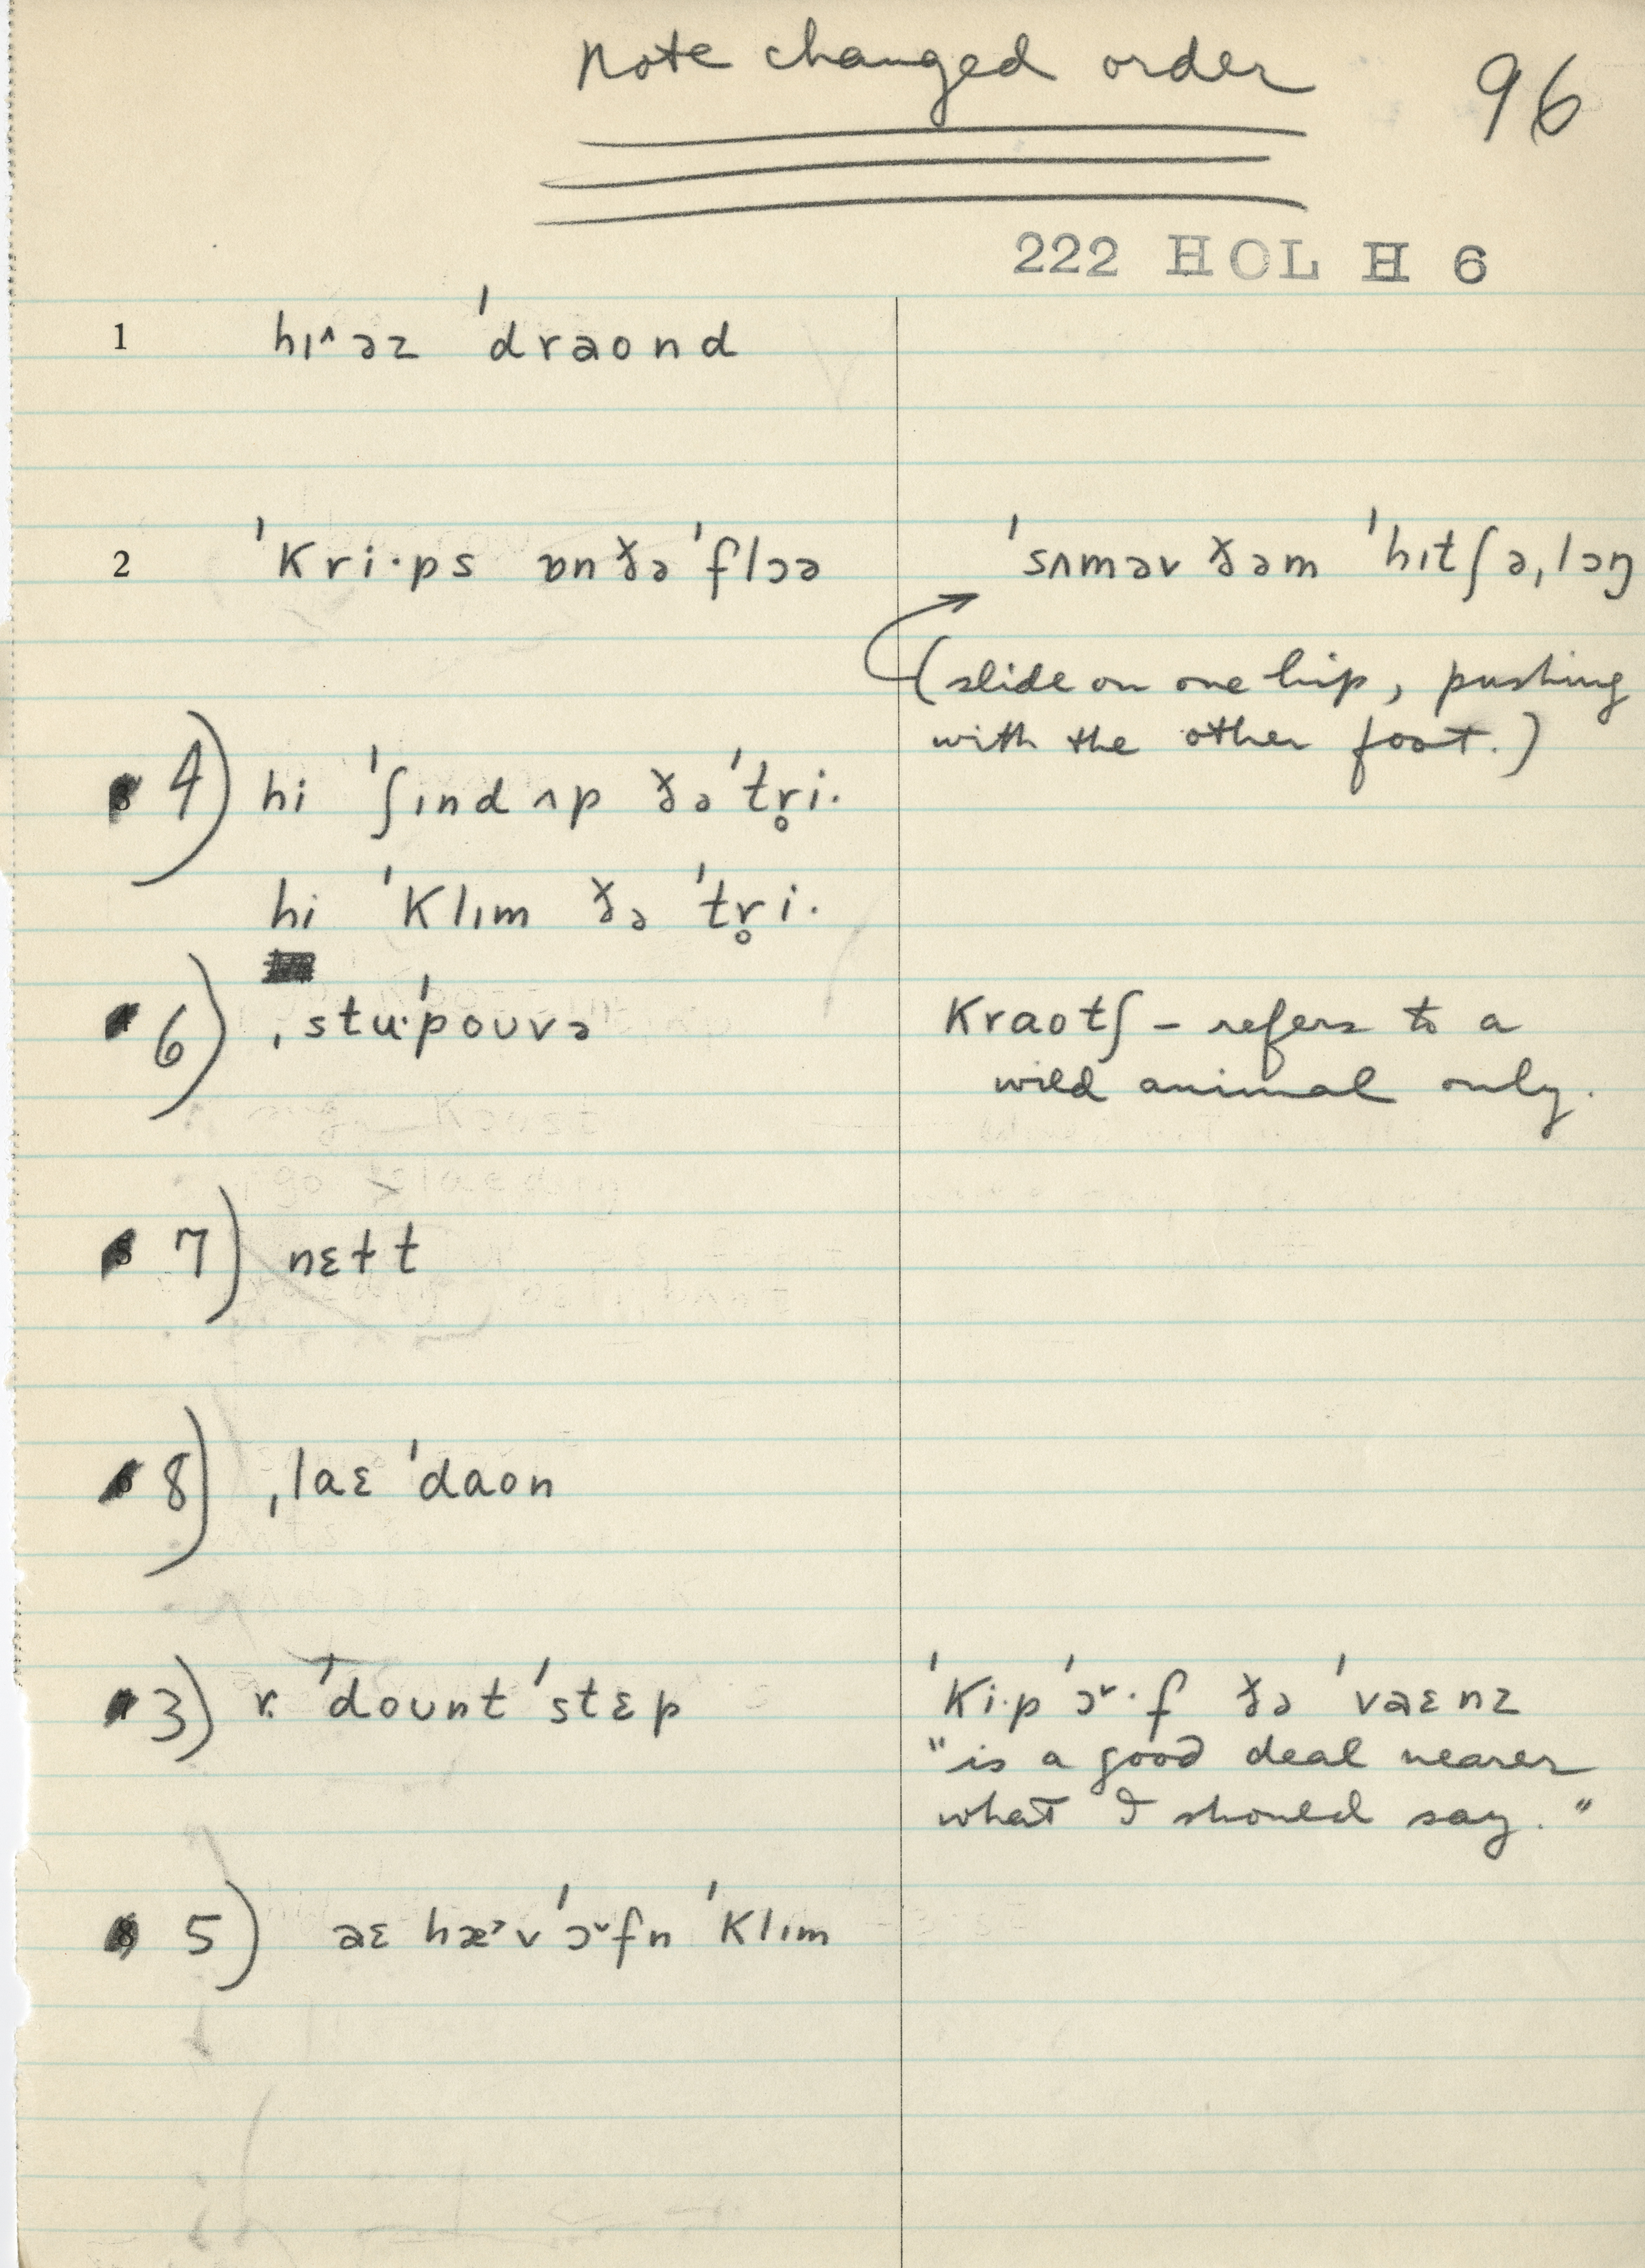 Note changed order
96
222 HOL H 6
1 hɪ^əz ˈdraond
2 ˈkri·ps ɒnðəˈflɔə
ˈsʌməv ðəm ˈhɪtʃəˌlɔŋ
(slide on one hip, pushing
with the other foot.)
4) hi ˈʃɪnd ʌp ðəˈtr̥i·
hi ˈklɪm ðə ˈtr̥i·
6) ˌstu·ˈpouvə
kraotʃ – refers to a
wild animal only.
7) nɛɫt
8) ˌlaɛ ˈdaon
3) ˈdount ˈstɛp
ˈki·p ˈɔ˅·f ðə ˈvaɛnz
"is a good deal nearer
what I should say."
5) aɛ hæ˒v ˈɔ˅fn ˈklɪm